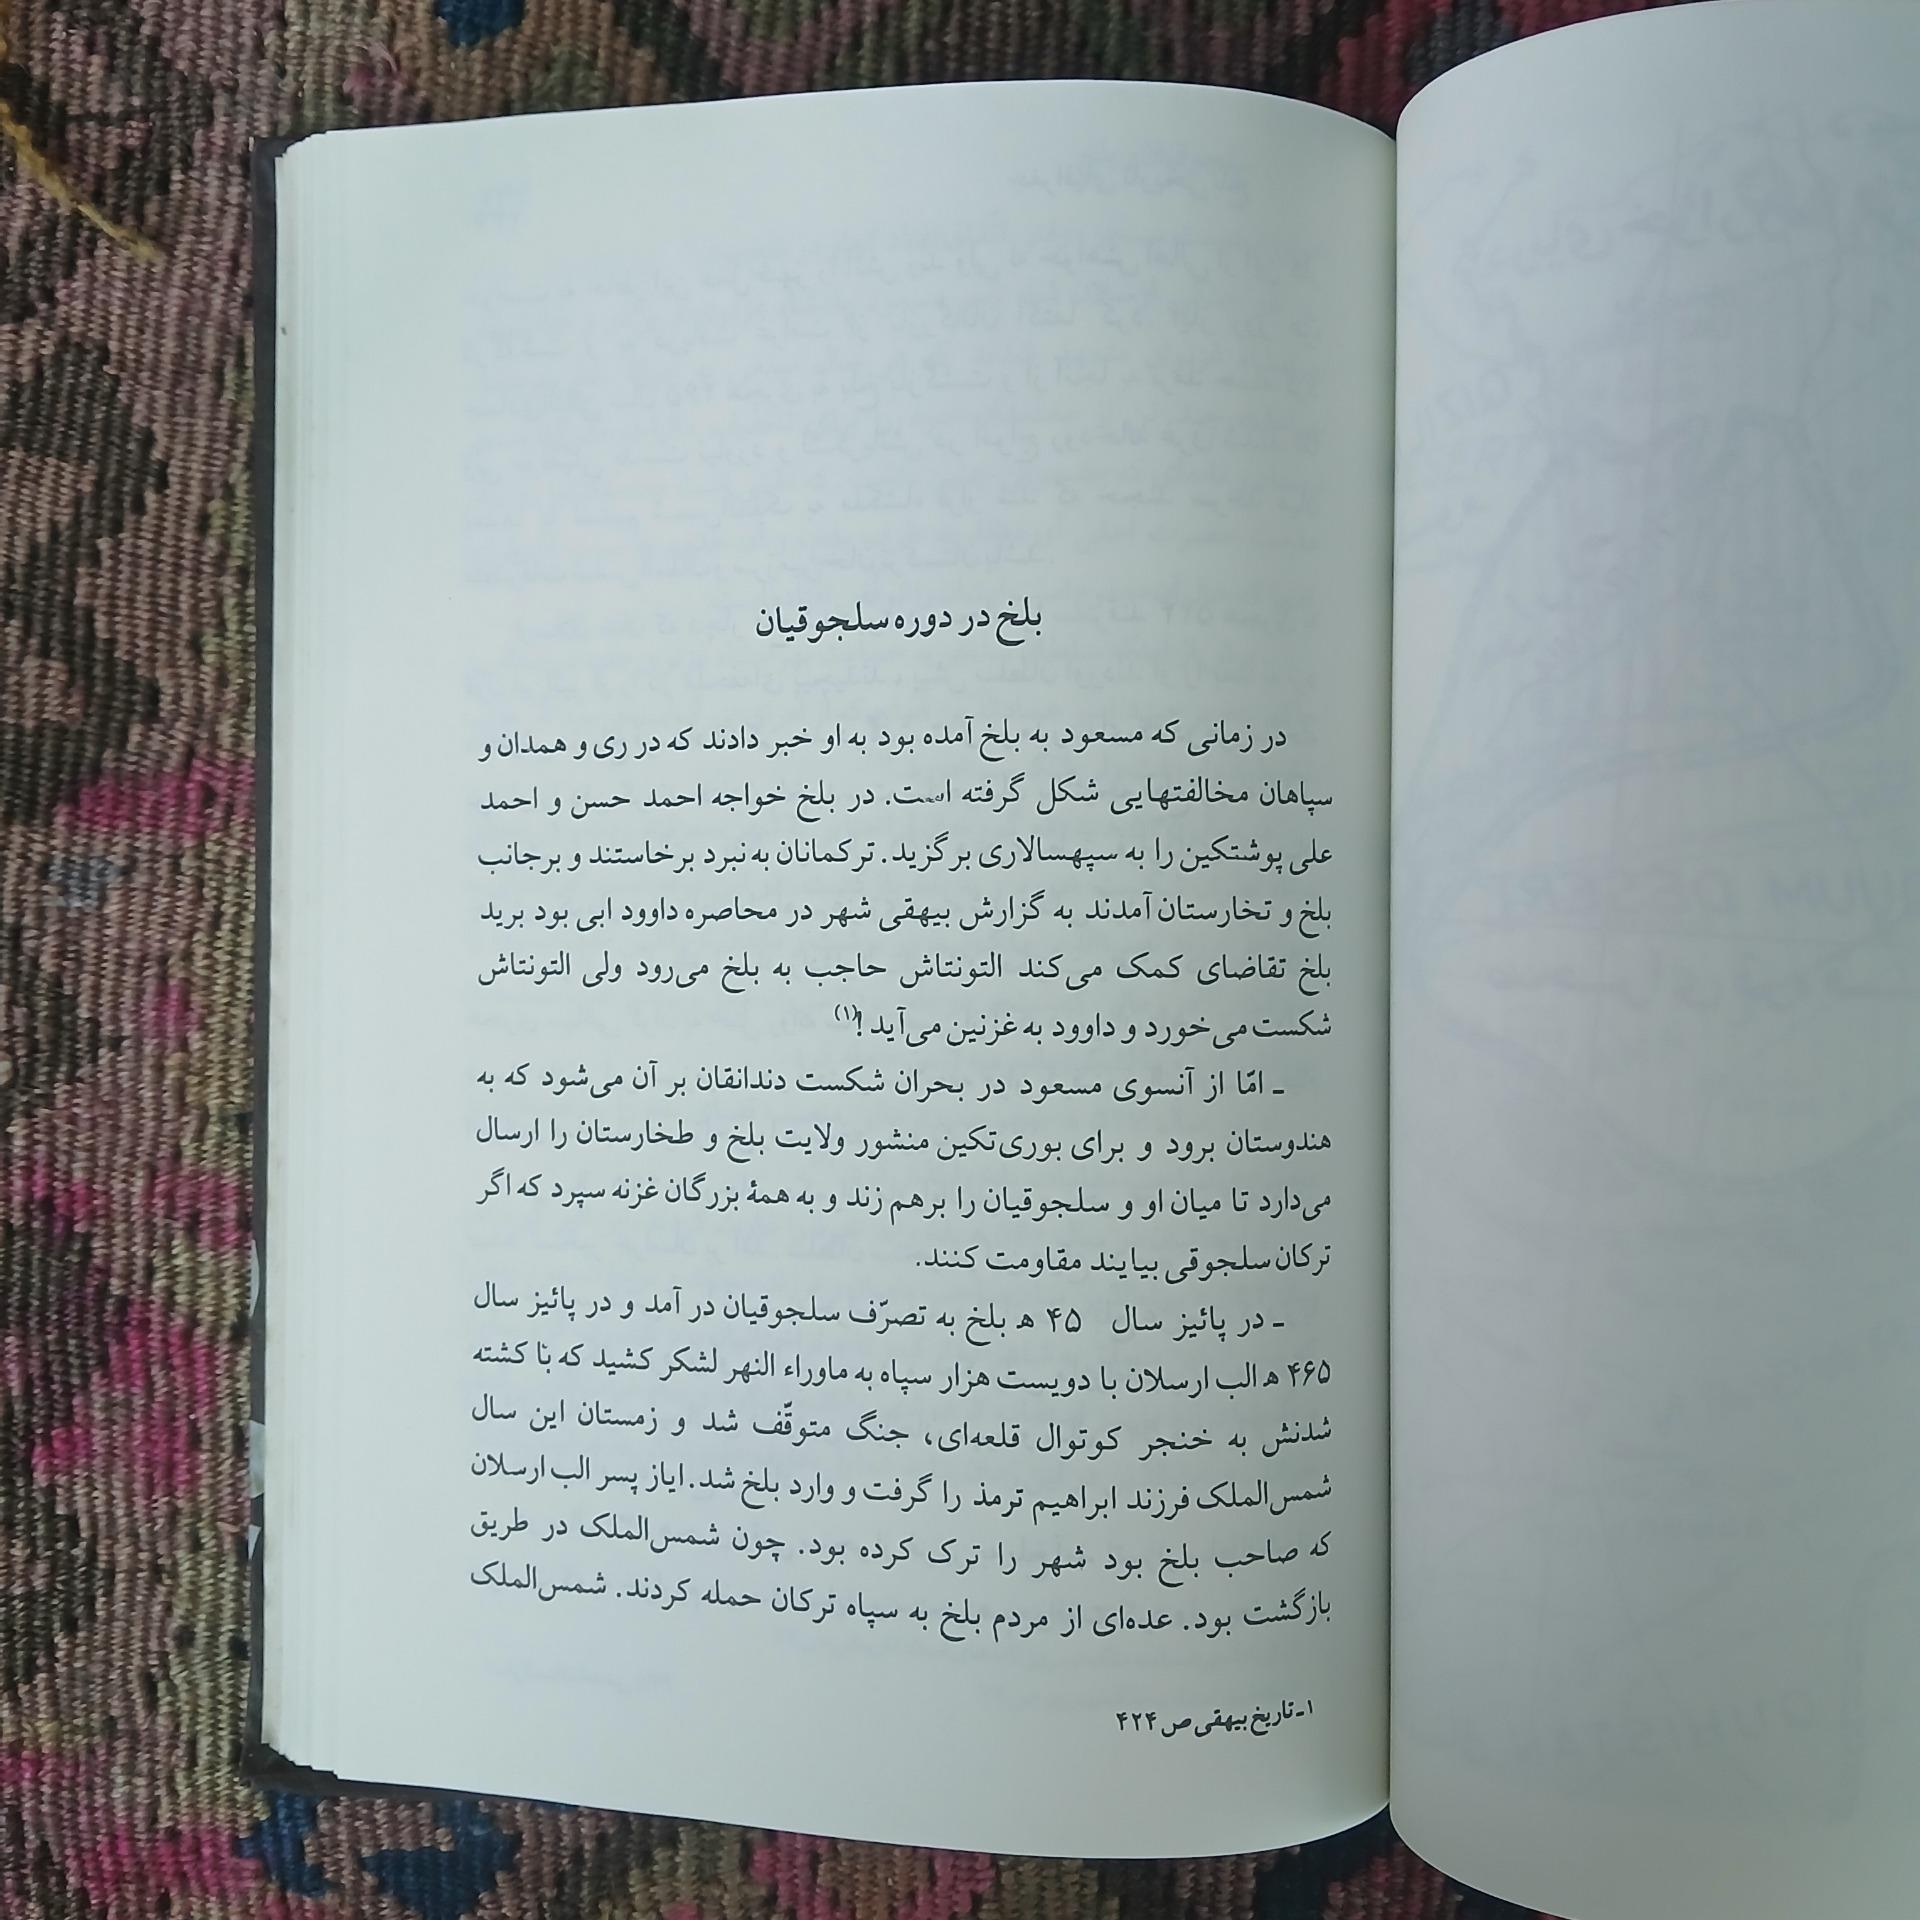 بلخ در دوره سلجوقیان
در زمانی که مسعود به بلخ آمده بود به او خبر دادند که در ری و همدان و
سپاهان مخالفتهایی شکل گرفته است. در بلخ خواجه احمد حسن و احمد
علی پوشتکین را به سپهسالاری برگزید. ترکمانان به نبرد برخاستند و برجانب
بلخ و تخارستان آمدند به گزارش بیهقی شهر در محاصره داوود ابی بود برید
بلخ تقاضای کمک می‌کند التونتاش حاجب به بلخ می‌رود ولی التونتاش
شکست می‌خورد و داوود به غزنین می‌آید!(۱)
ـ امّا از آنسوی مسعود در بحران شکست دندانقان بر آن می‌شود که به
هندوستان برود و برای بوری‌تکین منشور ولایت بلخ و طخارستان را ارسال
می‌دارد تا میان او و سلجوقیان را برهم زند و به همهٔ بزرگان غزنه سپرد که اگر
ترکان سلجوقی بیایند مقاومت کنند.
ـ در پائیز سال ۴۵ ه‍ بلخ به تصرّف سلجوقیان در آمد و در پائیز سال
۴۶۵ ه‍ الب ارسلان با دویست هزار سپاه به ماوراء النهر لشکر کشید که با کشته
شدنش به خنجر کوتوال قلعه‌ای، جنگ متوقّف شد و زمستان این سال
شمس‌الملک فرزند ابراهیم ترمذ را گرفت و وارد بلخ شد. ایاز پسر الب ارسلان
که صاحب بلخ بود شهر را ترک کرده بود. چون شمس‌الملک در طریق
بازگشت بود. عده‌ای از مردم بلخ به سپاه ترکان حمله کردند. شمس‌الملک
۱ـ تاریخ بیهقی ص ۴۲۴